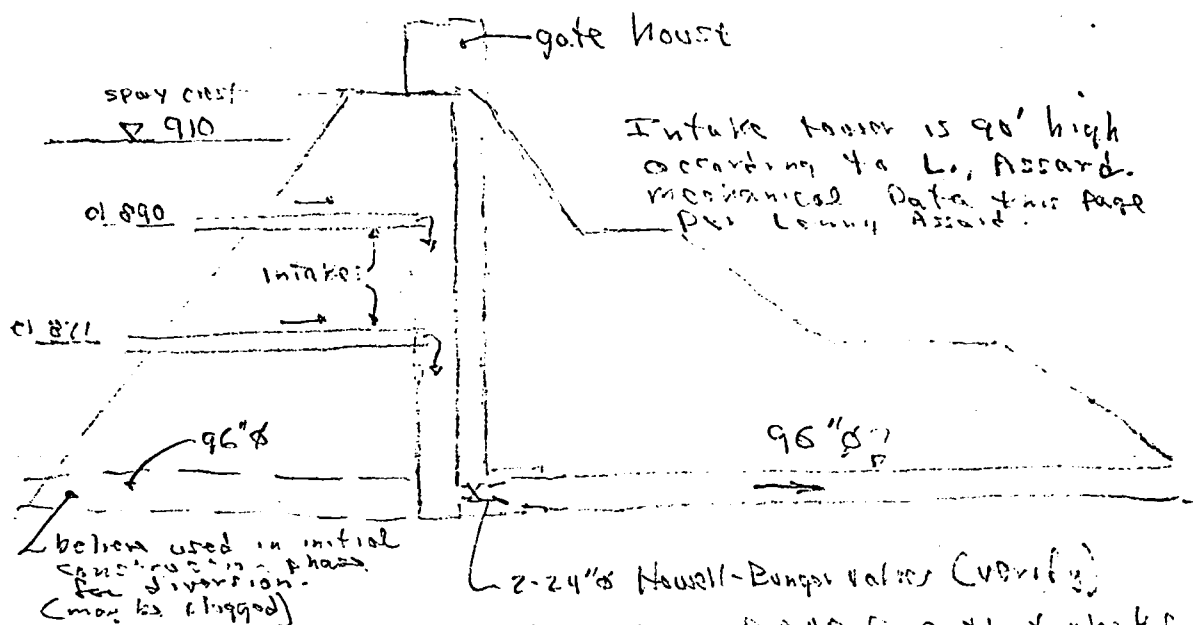 gate House
spwy crest
910
Intake tower is 90' high
according to L. Assard.
Mechanical Data this page
Per Lenny Assard.
el 890
Intakes
el 871
96"Ø
96"Ø?
believe used in initial
construction phase
for diversion.
(may be plugged)
2-24"Ø Howell-Bunger valves (verify)